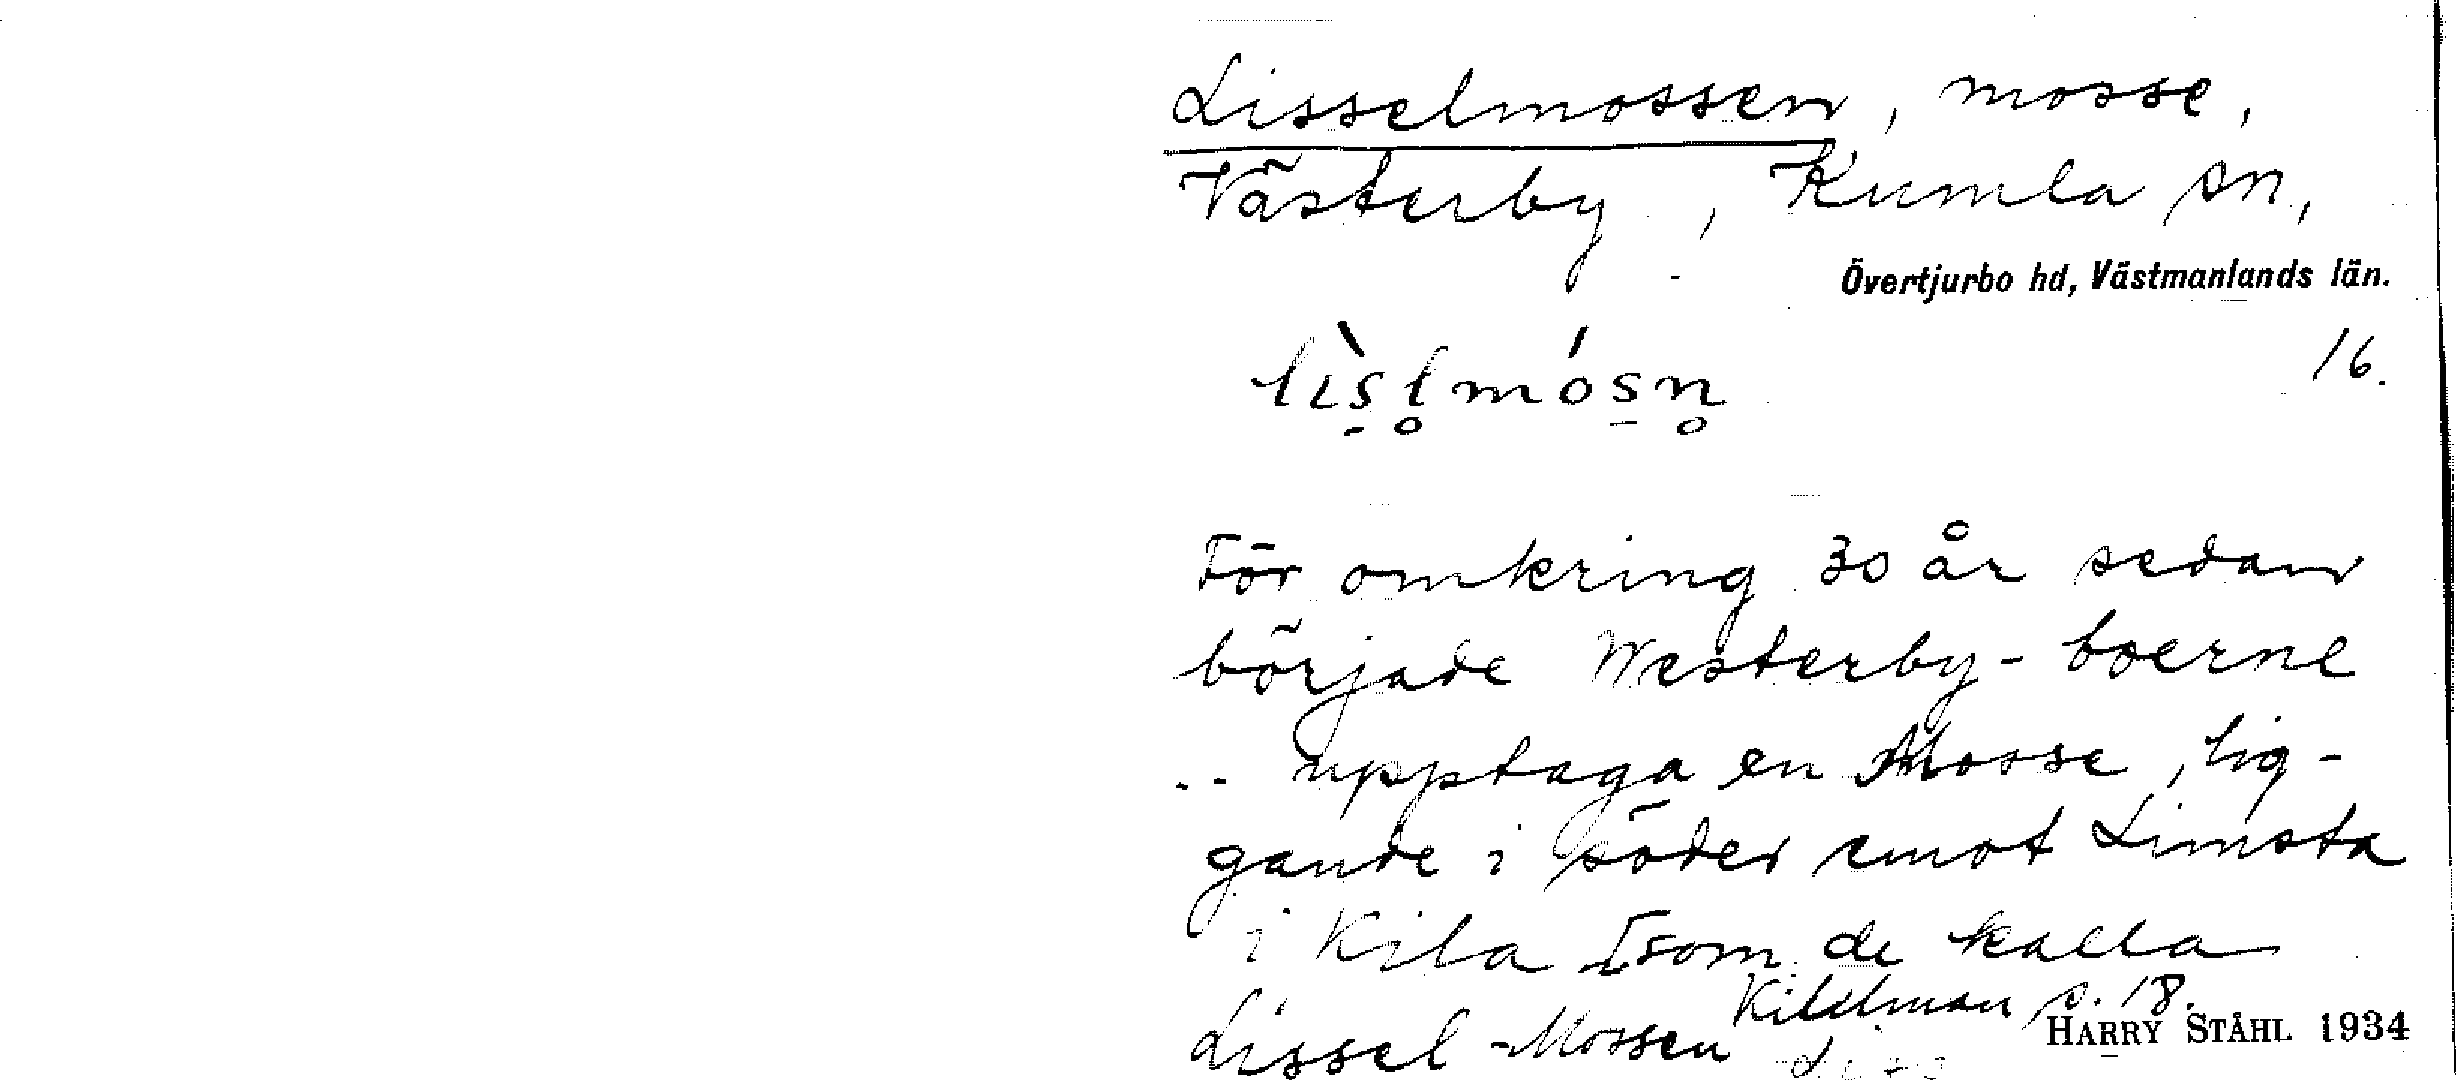 Lisselmossen, mosse,
Västerby, Kumla sn,
Övertjurbo hd, Västmanlands län.
16.
lìs̠l̥mós̠n̥
För omkring 30 år sedan
började Westerby-boerne
.. upptaga en Mosse, lig-
gande i söder emot Limsta
i Kila [som de kalla
Lissel-Mossen
Kihlman s. 18.
HARRY STÅHL 1934